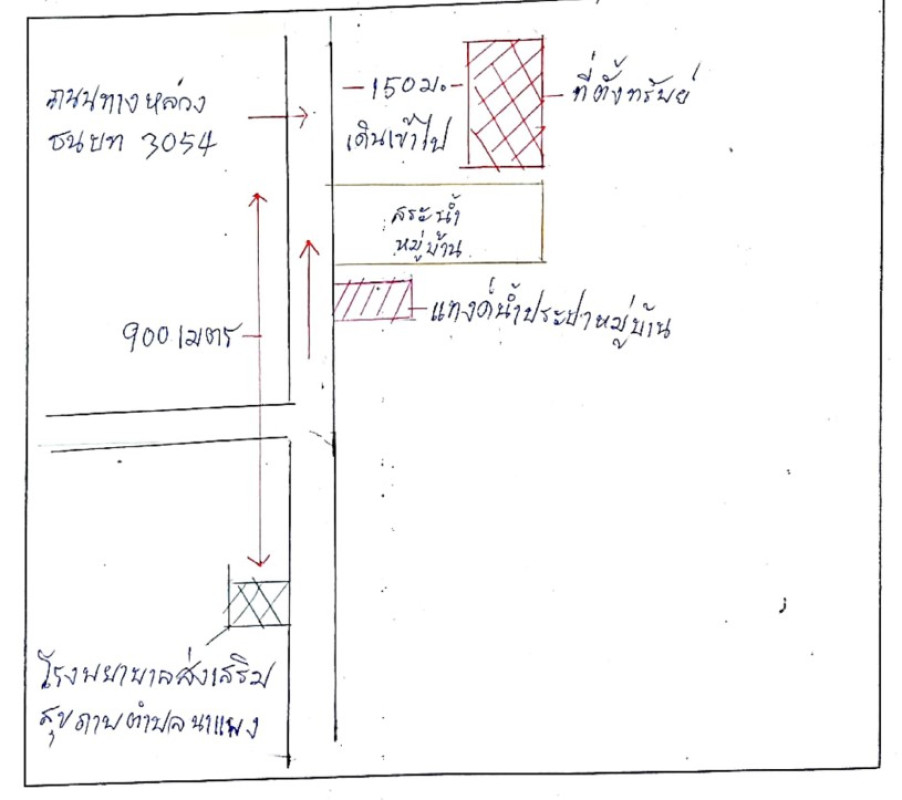 ถนนทางหลวง
ชนบท 3054
150 ม.
เดินเข้าไป
ที่ตั้งทรัพย์
สระน้ำ
หมู่บ้าน
แทงค์น้ำประปาหมู่บ้าน
900 เมตร
โรงพยาบาลส่งเสริม
สุขภาพตำบลนาแพง